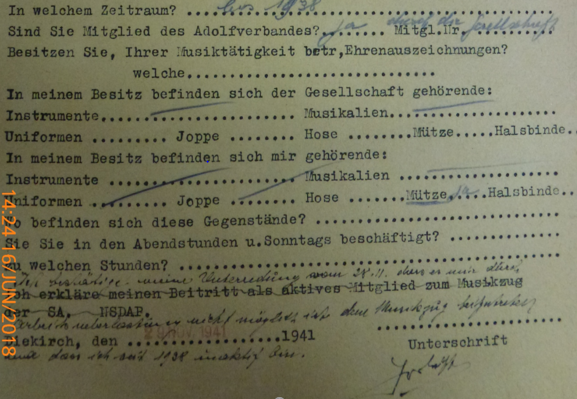 In welchem Zeitraum? bis 1938
Sind Sie Mitglied des Adolfverbandes? ja durch die Gesellschaft Mitgl.Nr.
Besitzen Sie, Ihrer Musiktätigkeit betr,Ehrenauszeichnungen?
welche
In meinem Besitz befinden sich der Gesellschaft gehörende:
Instrumente Musikalien
Uniformen Joppe Hose Mütze Halsbinde
In meinem Besitz befinden sich mir gehörende:
Instrumente Musikalien
Uniformen Joppe Hose Mütze ja Halsbinde
Wo befinden sich diese Gegenstände?
Sie Sie in den Abendstunden u.Sonntags beschäftigt?
zu welchen Stunden?
meine Unterredung vom 28.11. es mir
Ich erkläre meinen Beitritt als aktives Mitglied zum Musikzug
der SA, NSDAP.
nicht möglich ist dem Musikzug beizutreten
Diekirch, den 28 NOV. 1941 1941
Unterschrift
und dass ich seit 1938 inaktif bin.
14:24 16/JUN/2018